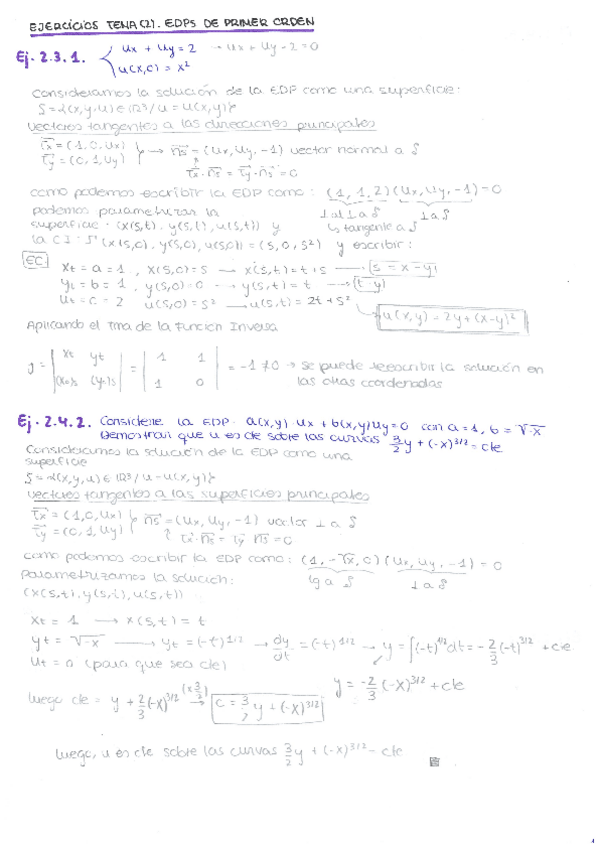 EJERCICIOS TEMA (2). EDPS DE PRIMER ORDEN
Ej. 2.3.1. { ux + uy = 2 → ux + uy - 2 = 0
u(x,0) = x²
Consideramos la solución de la EDP como una superficie:
S = {(x,y,u) ∈ ℝ³ / u = u(x,y)}
vectores tangentes a las direcciones principales
τx = (1,0,ux)
τy = (0,1,uy) } → ns = (ux, uy, -1) vector normal a S
τx · ns = τy · ns = 0
como podemos escribir la EDP como: (1,1,2)(ux, uy, -1) = 0
podemos parametrizar la
superficie · (x(s,t), y(s,t), u(s,t)) y ↳ tangente a S ⊥ a S
la CI: (x(s,0), y(s,0), u(s,0)) = (s, 0, s²) y escribir:
EC
xt = a = 1, x(s,0) = s → x(s,t) = t + s → s = x - y
yt = b = 1, y(s,0) = 0 → y(s,t) = t → t = y
ut = c = 2 u(s,0) = s² → u(s,t) = 2t + s² → u(x,y) = 2y + (x-y)²
Aplicando el Tma de la Función Inversa
J = | xt yt | = | 1 1 | = -1 ≠ 0 → se puede reescribir la solución en
| (x)s (y)s | | 1 0 | las otras coordenadas
Ej. 2.4.2. Considere la EDP a(x,y) · ux + b(x,y) uy = 0 con a = 1, b = √-x
Demostrar que u es cte sobre las curvas 3/2 y + (-x)^3/2 = cte
Consideramos la solución de la EDP como una
superficie
S = {(x,y,u) ∈ ℝ³ / u = u(x,y)}
vectores tangentes a las superficies principales
τx = (1,0,ux)
τy = (0,1,uy) } ns = (ux, uy, -1) vector ⊥ a S
τx · ns = τy · ns = 0
como podemos escribir la EDP como: (1, -√x, 0)(ux, uy, -1) = 0
Parametrizamos la solución: tg a S ⊥ a S
(x(s,t), y(s,t), u(s,t))
xt = 1 → x(s,t) = t
yt = √-x → yt = (-t)^1/2 → dy/dt = (-t)^1/2 → y = ∫(-t)^1/2 dt = -2/3 (-t)^3/2 + cte
ut = 0 (para que sea cte)
y = -2/3 (-x)^3/2 + cte
luego cte = y + 2/3 (-x)^3/2 (x 3/2) → c = 3/2 y + (-x)^3/2
luego, u es cte sobre las curvas 3/2 y + (-x)^3/2 = cte